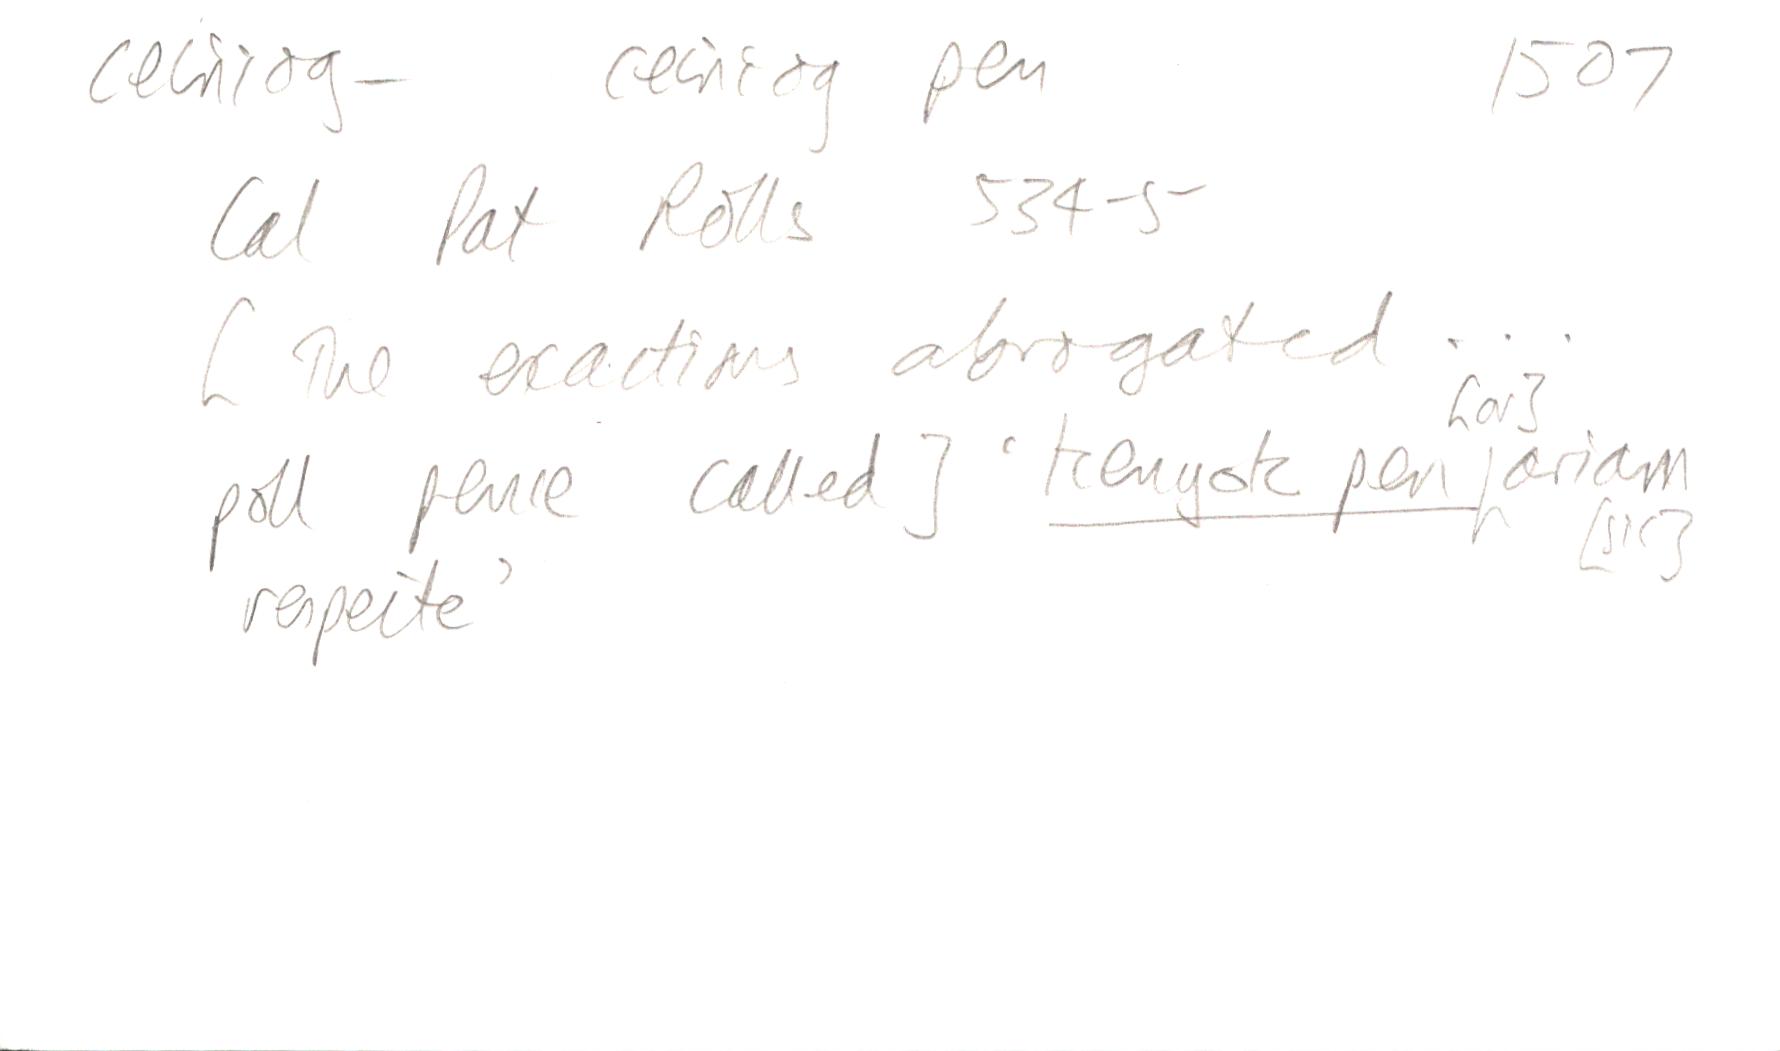 ceiniog – ceiniog pen 1507
Cal Pat Rolls 534-5
[The exactions abrogated ...
poll pence called] 'kenyok pen [or] ariam
[sic]
respecte'